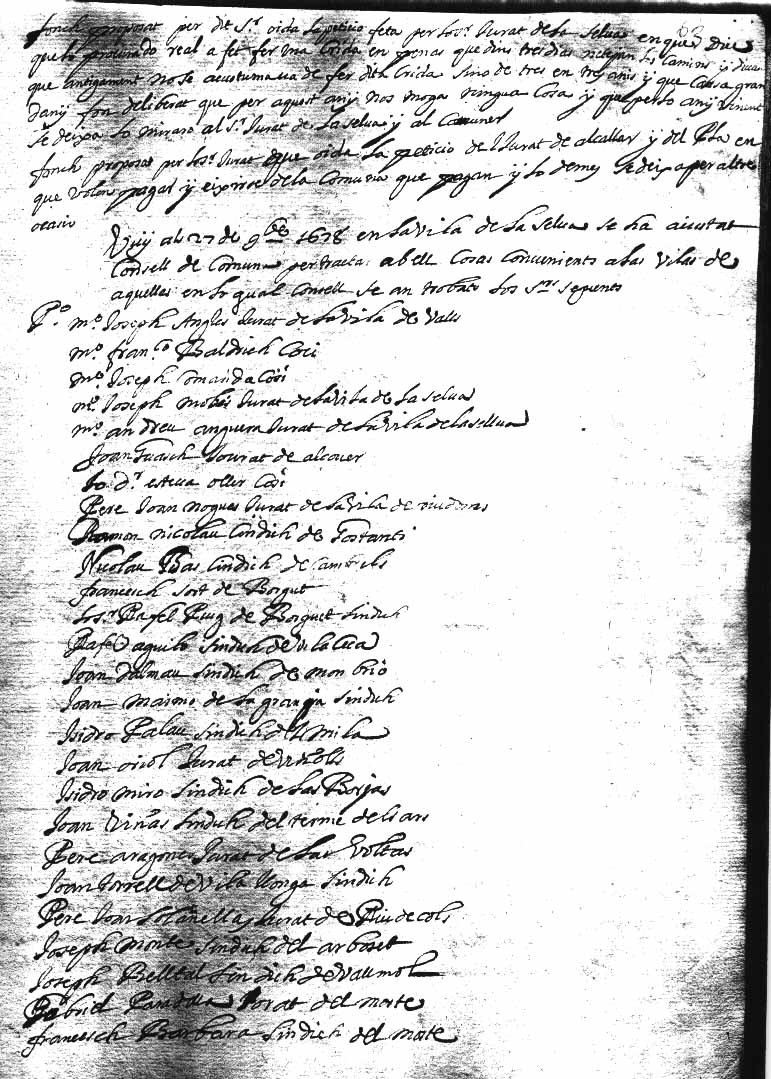 fonch proposat per dit Sr oida la peticio feta per lo Sr Jurat de la Selva en que diu
que lo procurado real a fet fer una Crida en penas que dins tres dias netejan los Camins y diuan
que antigament no se acustumaua de fer dita Crida sino de tres en tres anis y que Causa gran
dany fon deliberat que per aquest any nos moga ningua Cosa y que per lo any vinent
se deixa lo miraro al Sr Jurat de la Selua y al Comuner
fonch proposat per lo Sr Jurat que oida la peticio del Jurat de alcollar y del Pla en
que volen pagar y exirse de la Comuna que pagan y lo demes se deixa per altre
ocasio
Vuy als 27 de 9bre 1678 en la vila de la Selua se ha aiustat
Consell de Comuna per tracta abell Cosas Conuenients a las vilas de
aquelles en lo qual Consell se an trobats los srs seguents
Po mo Joseph Angles Jurat de la vila de Valls
mo franco Baldrich Coci
mo Joseph Comanda Coci
mo Joseph Jurat de la vila de la selua
mo andreu anguera Jurat de la vila de la sellua
Joan Jourat de alcouer
lo dr esteua oller Coci
Pere Joan nogues Jurat de la vila de riudoms
Ramon nicolau Cindich de Costanti
Nicolau Bas Cindich de Cambrils
francesch sort de Borgut
lo sr Rafel Puig de Borguet sindich
Rafel aquilo sindich de vilaseca
Joan dalmau sindich de mon brio
Joan maimo de la granja sindich
Isidro Palau sindich del mila
Joan oriol Jurat de vinols
Isidro miro sindich de las Borjas
Joan Viñas sindich del terme
Pere aragones Jurat de las Voltas
Joan Torrell de vila llonga sindich
Pere Joan Jurat de Riudecols
Joseph Monte sindich del arboset
Joseph Belltal sindich de vallmoll
Gabriel Jorat del morte
francesch Barbara sindich del morte